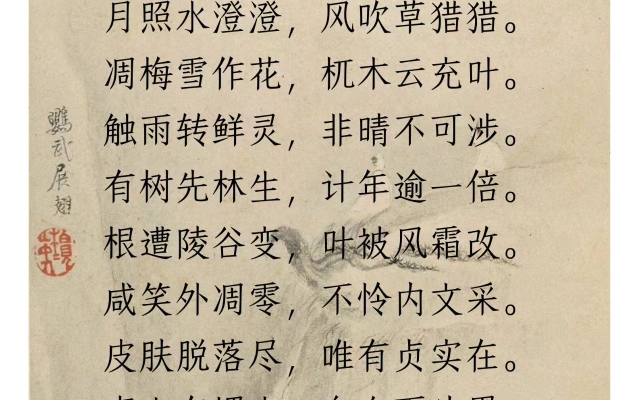 月照水澄澄，风吹草猎猎。
凋梅雪作花，杌木云充叶。
触雨转鲜灵，非晴不可涉。
有树先林生，计年逾一倍。
根遭陵谷变，叶被风霜改。
咸笑外凋零，不怜内文采。
皮肤脱落尽，唯有贞实在。
鹦武展翅